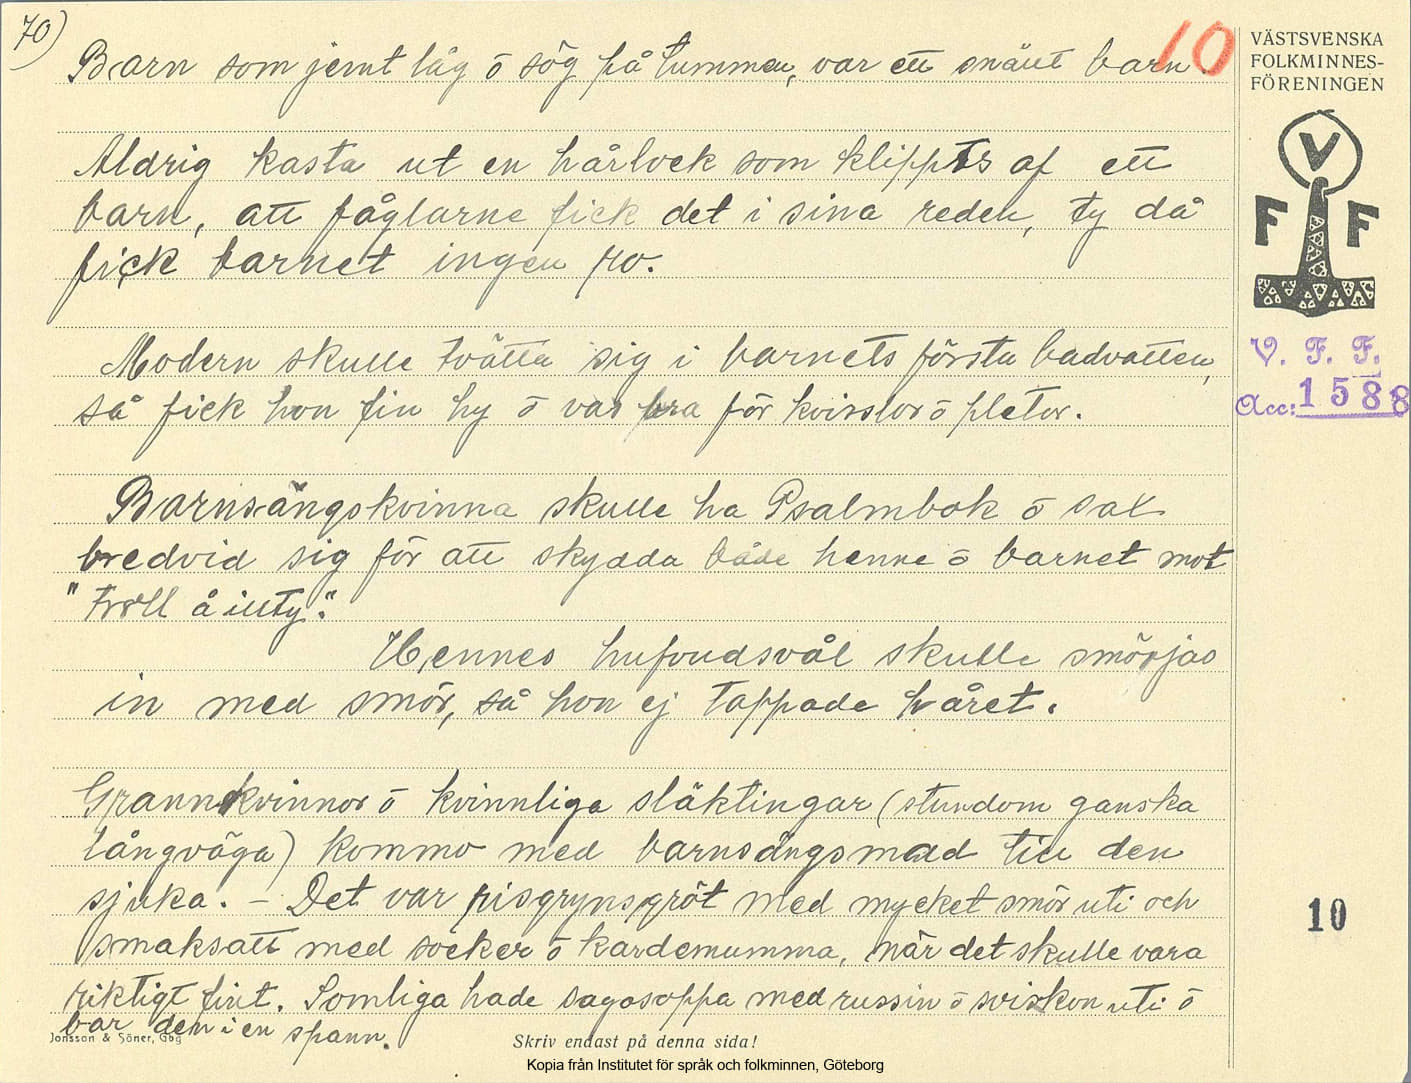 70)
10
Barn som jemt låg ō sög på tummen, var ett snält barn.
Aldrig kasta ut en hårlock som klippts af ett
barn, att fåglarne fick det i sina reden, ty då
fick barnet ingen ro.
Modern skulle tvätta sig i barnets första badvatten,
så fick hon fin hy ō var bra för kvisslor ō pletor.
Barnsängskvinna skulle ha Psalmbok ō sax
bredvid sig för att skydda både henne ō barnet mot
"Troll å illty".
Hennes hufvudsvål skulle smörjas
in med smör, så hon ej tappade håret.
Grannkvinnor ō kvinnliga släktingar (stundom ganska
långväga) kommo med barnsängsmad till den
sjuka. – Det var risgrynsgröt med mycket smör uti och
smaksatt med socker ō kardemumma, när det skulle vara
riktigt fint. Somliga hade sagosoppa med russin ō sviskon uti ō
bar dem i en spann.
Jonsson & Söner, Gbg
Skriv endast på denna sida!
Kopia från Institutet för språk och folkminnen, Göteborg
VÄSTSVENSKA
FOLKMINNES-
FÖRENINGEN
V
F F
V. F. F.
Acc: 1588
10